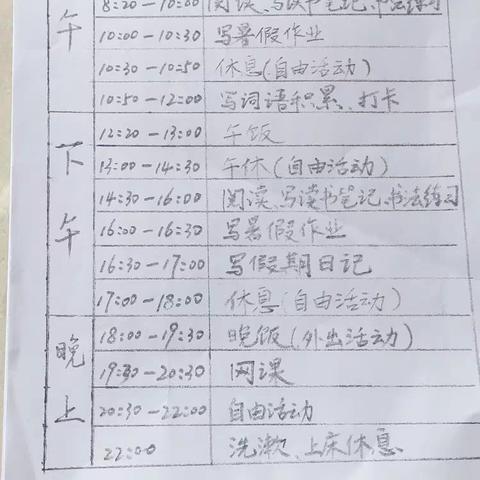 8:20-10:00 阅读、写读书笔记、书法练习
午
10:00-10:30 写暑假作业
10:30-10:50 休息(自由活动)
10:50-12:00 写词语积累、打卡
12:20-13:00 午饭
下
13:00-14:30 午休(自由活动)
14:30-16:00 阅读、写读书笔记、书法练习
午
16:00-16:30 写暑假作业
16:30-17:00 写假期日记
17:00-18:00 休息(自由活动)
18:00-19:30 晚饭(外出活动)
晚
19:30-20:30 网课
上
20:30-22:00 自由活动
22:00 洗漱、上床休息